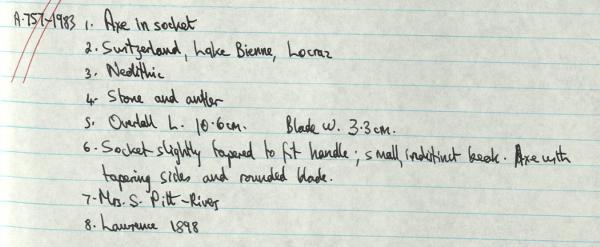 A.757-1983 1. Axe in socket
2. Switzerland, Lake Bienne, Locraz
3. Neolithic
4. Stone and antler
5. Overall L. 10.6cm. Blade W. 3.3cm.
6. Socket slightly tapered to fit handle; small, indistinct beak. Axe with
tapering sides and rounded blade.
7. Mrs. S. Pitt-Rivers
8. Lawrence 1898